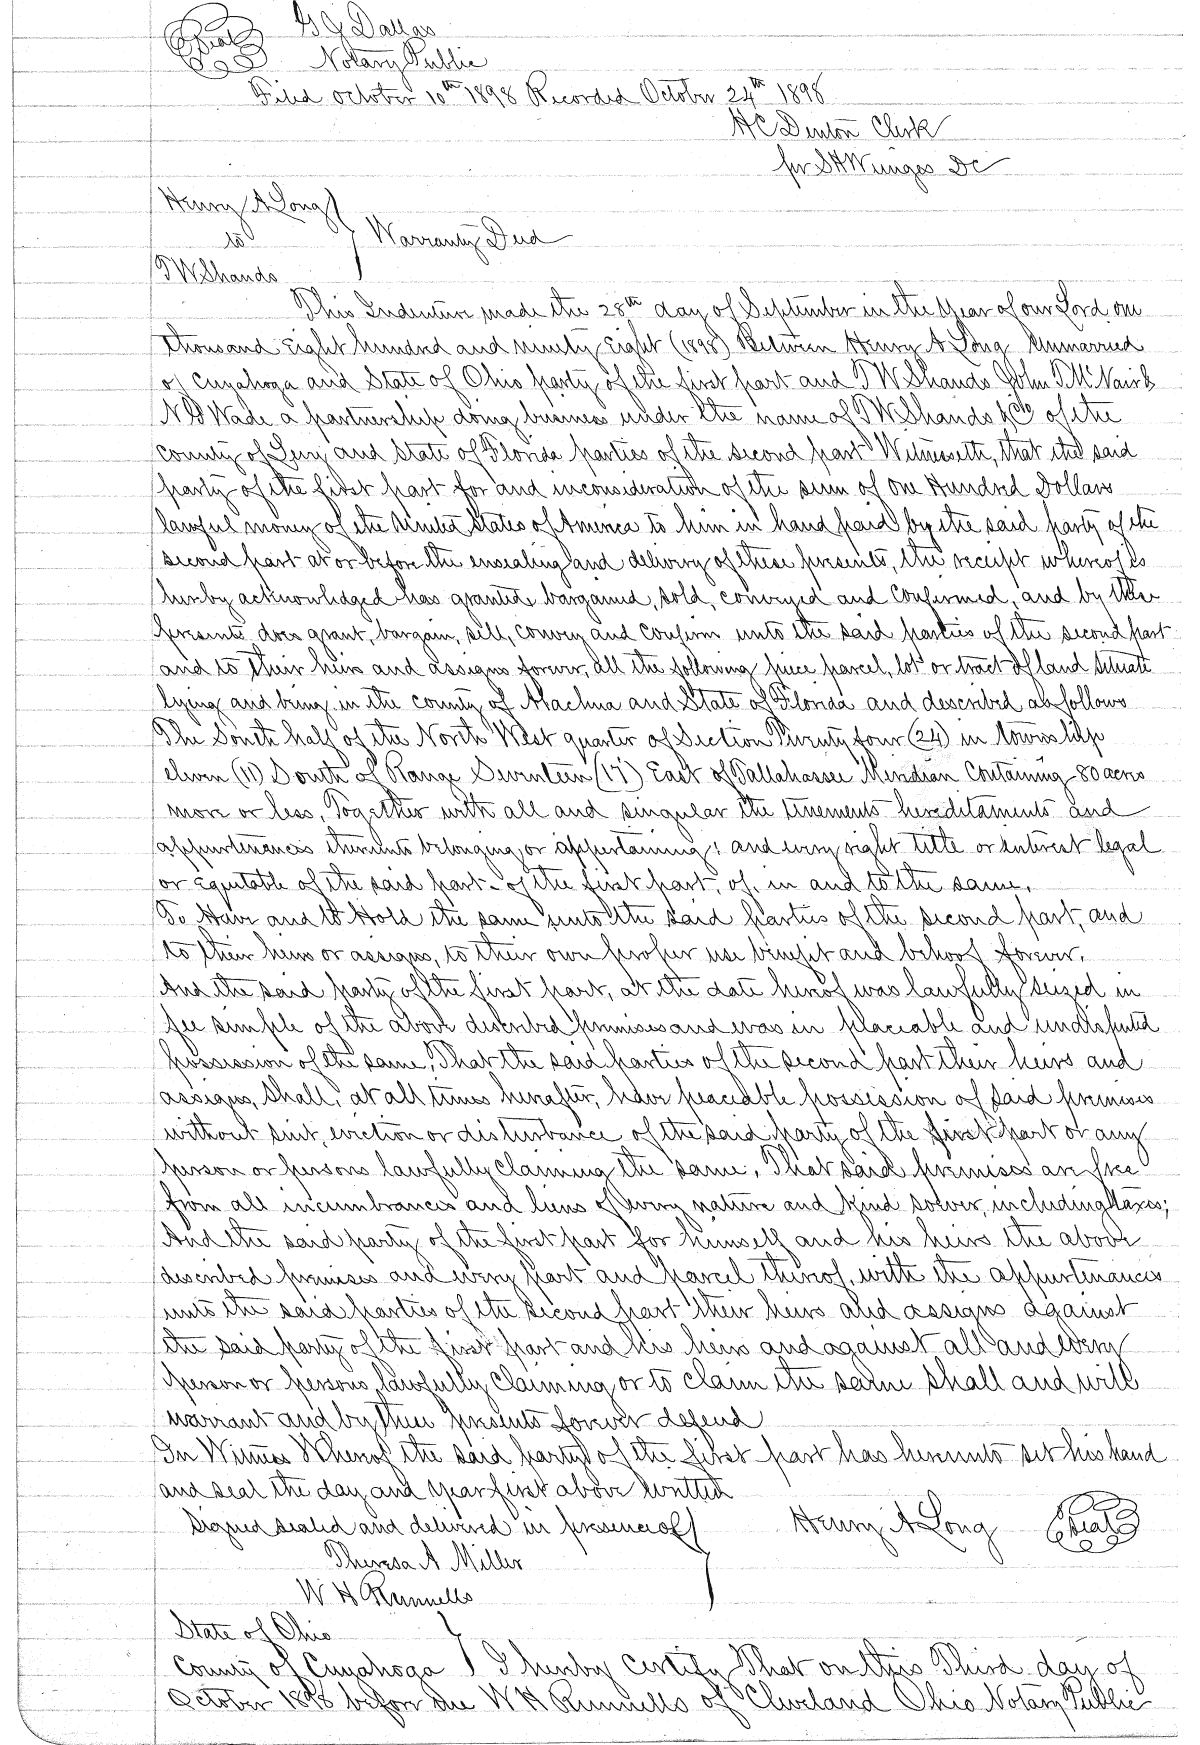 Seal G G Dallas
Notary Public
Filed October 10th 1898 Recorded October 24th 1898
H C Denton Clerk
pr S H Wienges DC
Henry A Long
to Warranty Deed
T W Shands
This Indenture made the 28th day of September in the Year of our Lord one
thousand Eight hundred and ninety Eight (1898) Between Henry A Long Unmarried
of Cuyahoga and State of Ohio party of the first part and T W Shands John T McNair &
N G Wade a partnership doing business under the name of T W Shands & Co of the
county of Levy and State of Florida parties of the second part Witnesseth, that the said
party of the first part for and inconsideration of the sum of One Hundred Dollars
lawful money of the United States of America to him in hand paid by the said party of the
second part at or before the ensealing and delivery of these presents, the receipt whereof is
hereby acknowledged has granted, bargained, sold, conveyed and Confirmed, and by these
presents does grant, bargain, sell, convey and confirm unto the said parties of the second part
and to their heirs and assigns forever, all the following piece parcel, lot or tract of land situate
lying and being in the county of Alachua and State of Florida and described as follows
The South half of the North West quarter of Section Twenty four (24) in township
eleven (11) South of Range Seventeen (17) East of Tallahassee Meridian Containing 80 acres
more or less, Together with all and singular the tenements hereditaments and
appurtenances thereunto belonging or appertaining; and every right title or interest legal
or Equitable of the said part- of the first part, of, in and to the same.
To Have and to Hold the same unto the said parties of the second part, and
to their heirs or assigns, to their own proper use benefit and behoof forever.
And the said party of the first part, at the date hereof was lawfully seized in
fee simple of the above described premises and was in placeable and undisputed
possession of the same, That the said parties of the second part their heirs and
assigns, Shall, at all times hereafter, have peaceable possession of said premises
without suit, eviction or disturbance of the said party of the first part or any
person or persons lawfully claiming the same, That said premises are free
from all incumbrances and liens of every nature and kind soever, including taxes;
And the said party of the first part for himself and his heirs the above
described premises and every part and parcel thereof, with the appurtenances
unto the said parties of the second part their heirs and assigns against
the said party of the first part and his heirs and against all and every
person or persons, lawfully Claiming or to claim the same shall and will
warrant and by these presents forever defend
In Witness Whereof the said party of the first part has hereunto set his hand
and seal the day and year first above written
Signed sealed and delivered in presence of Henry A Long Seal
Theresa A Miller
W H Runnells
State of Ohio
County of Cuyahoga I hereby certify That on this Third day of
October 1898 before me W H Runnells of Cleveland Ohio Notary Public